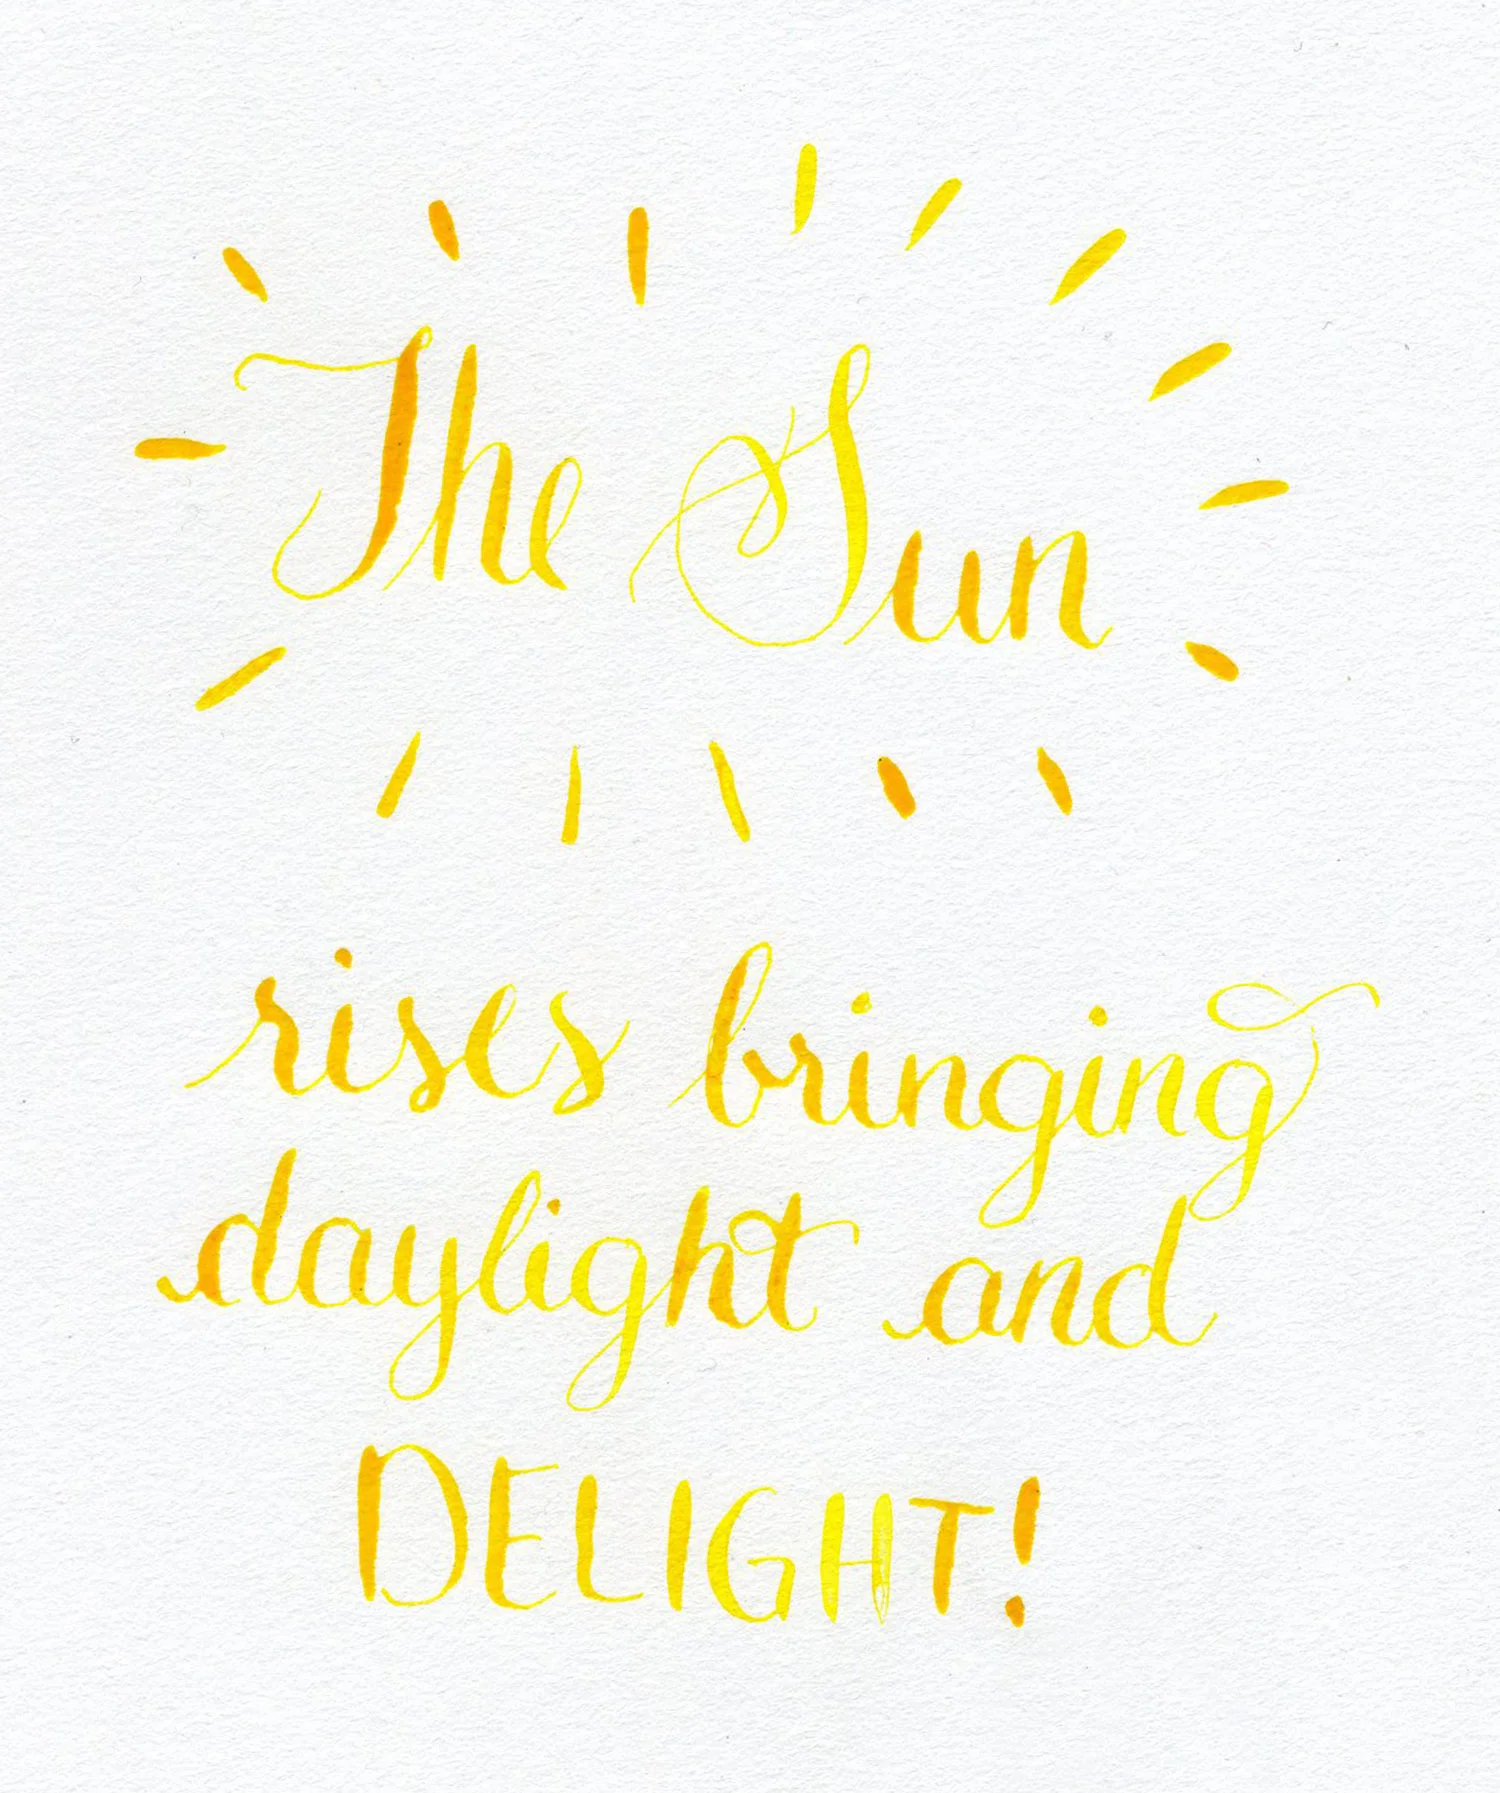 The Sun
rises bringing
daylight and
DELIGHT!